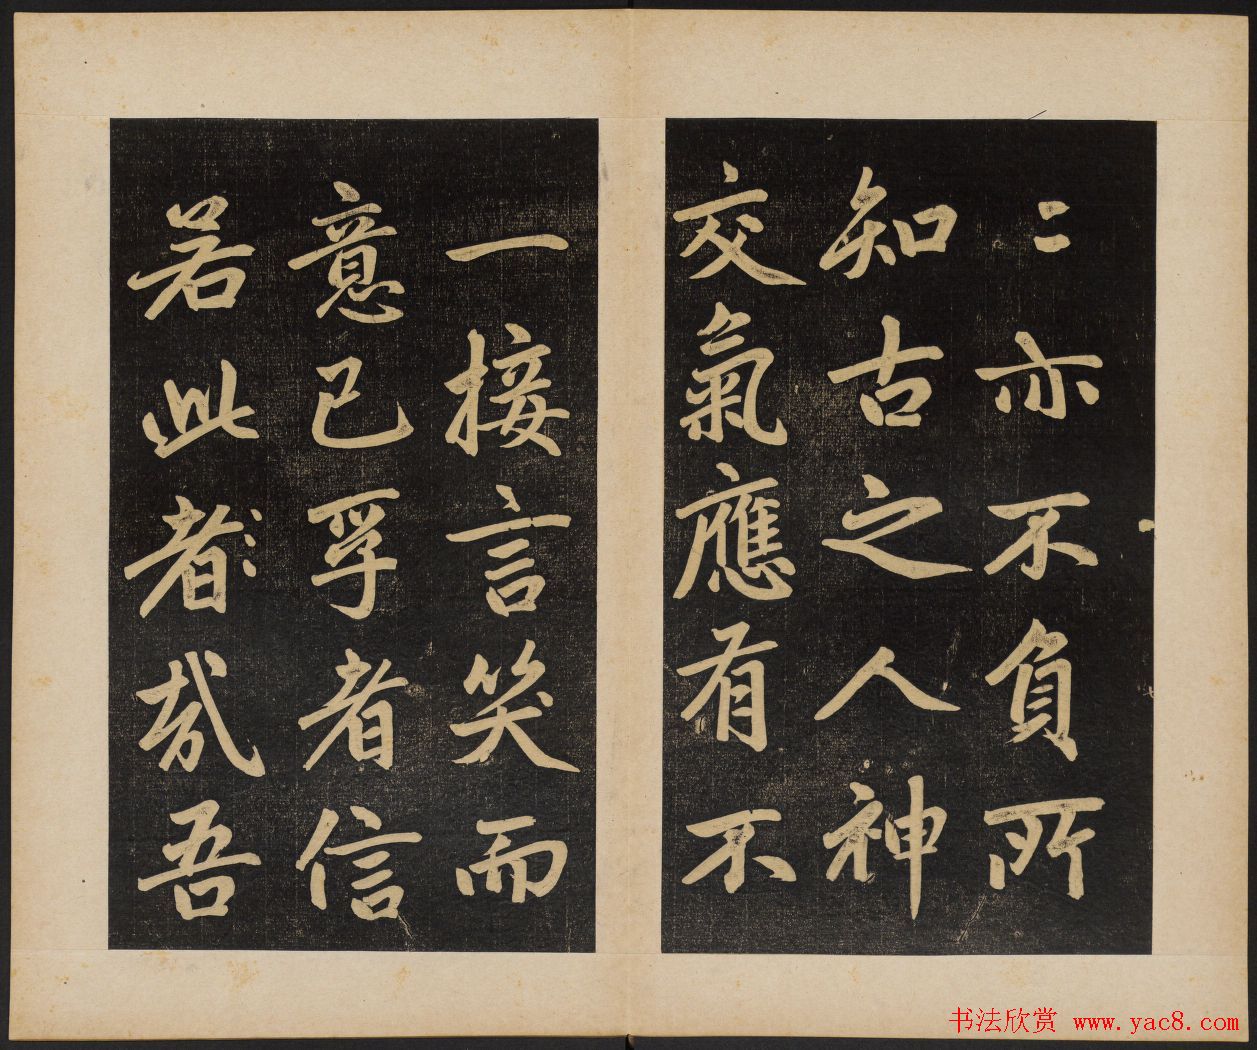 〻亦不負所
知古之人神
交氣應有不
一接言笑而
意已孚者信
若此者哉吾
书法欣赏 www.yac8.com